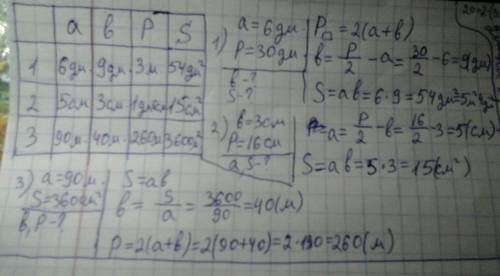 a b P S
1 6дм. 9дм. 3м 54дм²
2 5см 3см 15см²
3 90м. 40м. 260м 3600м²
1) a=6дм.
P=30дм
b-?
S-?
P□=2(a+b)
b=P/2-a=30/2-6=9(дм)
S=ab=6·9=54дм²
2) b=3см
P=16см
a,S-?
a=P/2-b=16/2-3=5(см)
S=ab=5·3=15(см²)
3) a=90м.
b,P-?
S=ab
b=S/a=3600/90=40(м)
P=2(a+b)=2(90+40)=2·130=260(м)